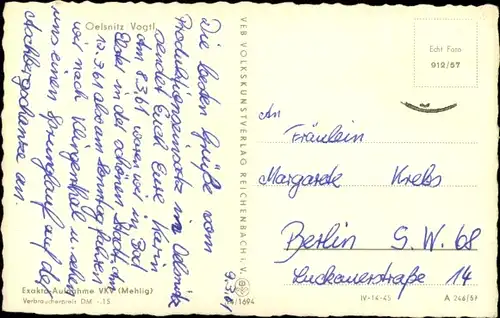 Oelsnitz Vogtl.
9.3.61
Die besten Grüße vom
Produktionseinsatz in Oelsnitz
sendet Euch Eure Karin
Am 8.3.61 waren wir in Bad
Elster in der schönen Stadt. Am
12.3.61 also am Sonntag fahren
wir nach Klingenthal u. sehen
uns einen Sprunglauf auf der
Aschbergschanze an.
Exakta-Aufnahme VKV (Mehlig)
Verbraucherpreis DM -.15
VEB VOLKSKUNSTVERLAG REICHENBACH i. V.
/1694
Echt Foto
912/57
An
Fräulein
Margarete Krebs
Berlin S.W. 68
Luckauerstraße 14
IV-14-45 A 246/57